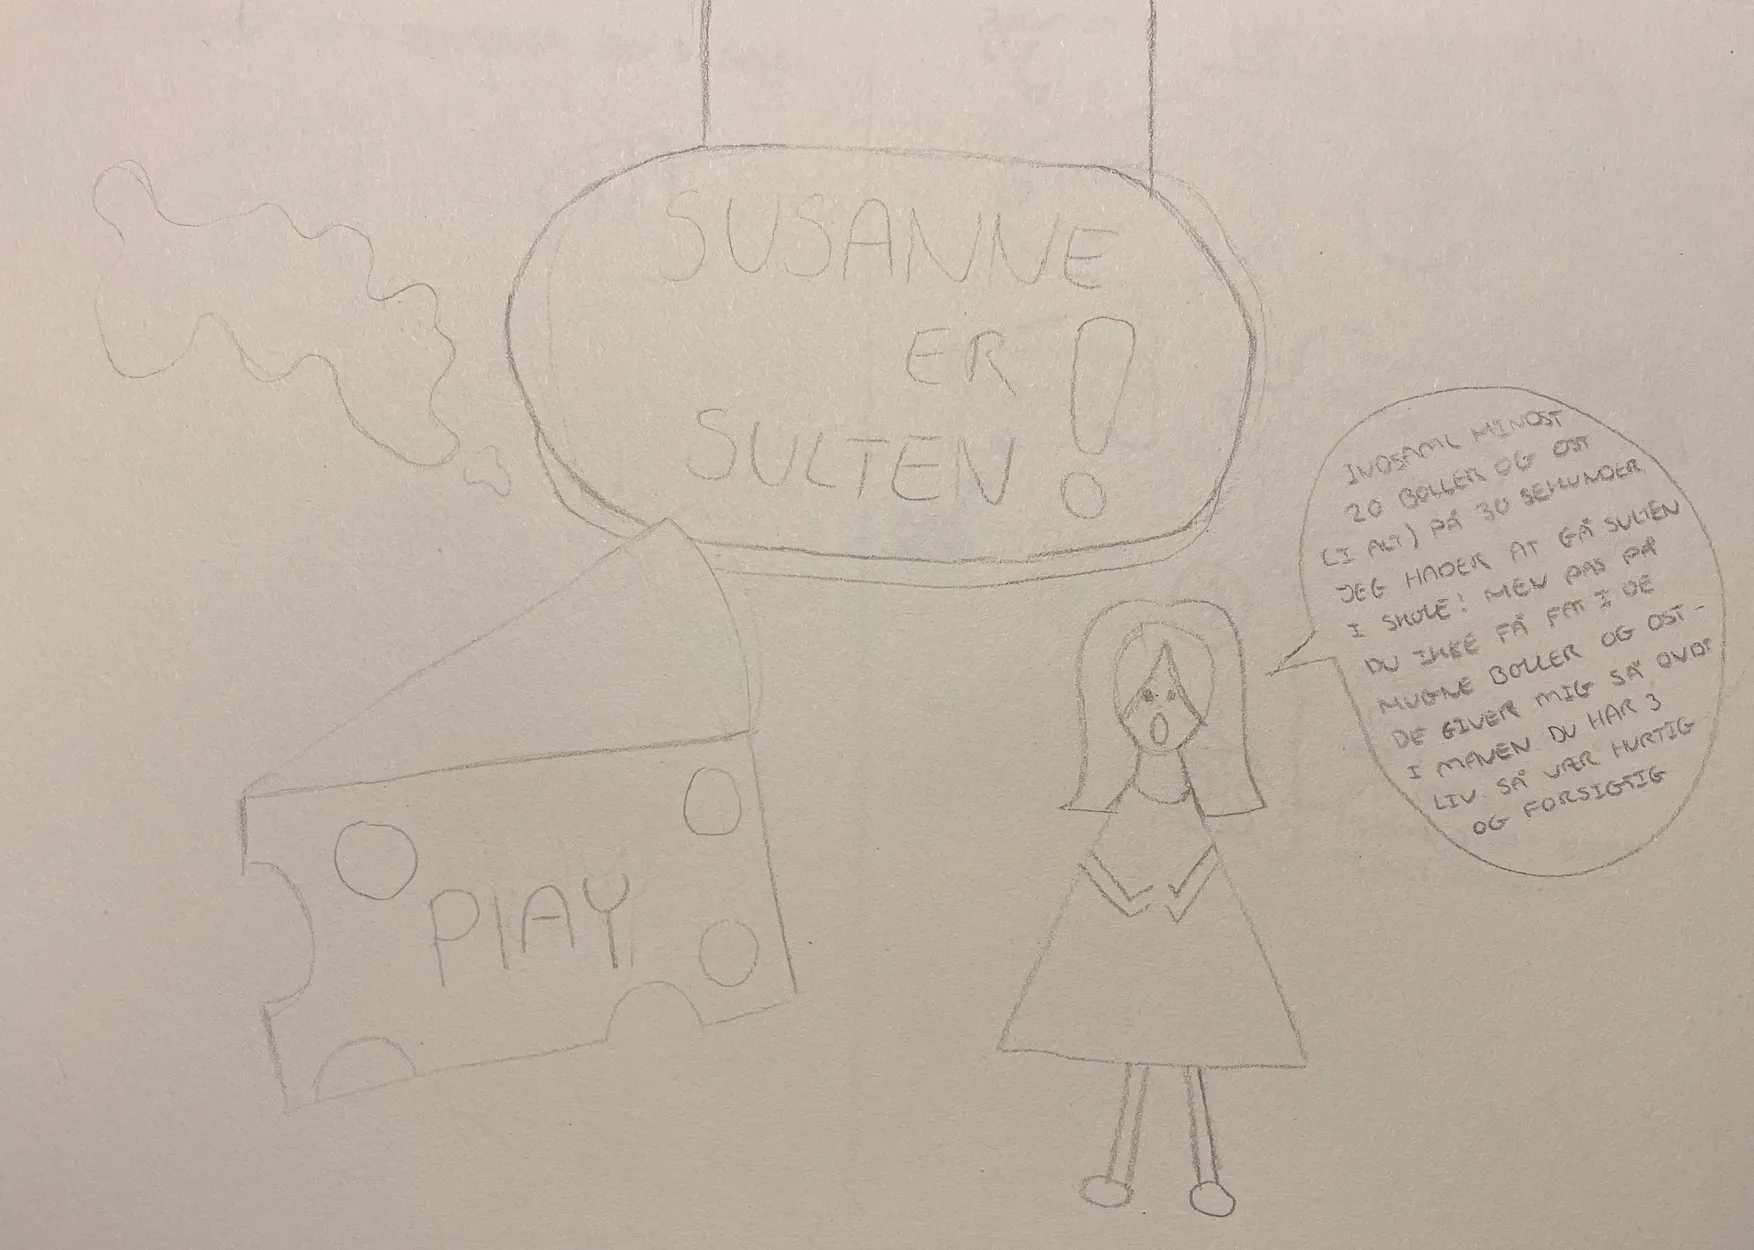 SUSANNE
ER
SULTEN!
INDSAML MINDST
20 BOLLER OG OST
(I ALT) PÅ 30 SEKUNDER
JEG HADER AT GÅ SULTEN
I SKOLE! MEN PAS PÅ
DU IKKE FÅ FAT I DE
MUGNE BOLLER OG OST-
DE GIVER MIG SÅ OVDT
I MAVEN DU HAR 3
LIV SÅ VÆR HURTIG
OG FORSIGTIG
PLAY